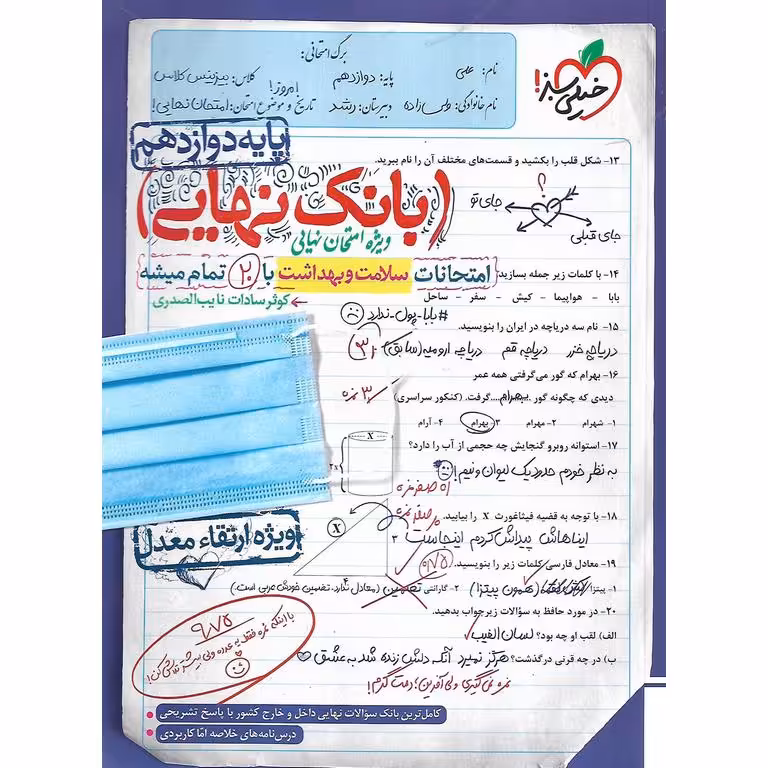 خیلی سبز!
برگ امتحانی:
نام: علی
پایه: دوازدهم
کلاس: بیزینس کلاس
نام خانوادگی: ولی زاده
دبیرستان: رشد
تاریخ و موضوع امتحان: امروز! امتحان نهایی!
پایه دوازدهم
(بانک نهایی)
ویژه امتحان نهایی
امتحانات سلامت و بهداشت با ۲۰ تمام میشه
کوثر سادات نایب الصدری
۱۳- شکل قلب را بکشید و قسمت‌های مختلف آن را نام ببرید.
؟
جای تو
جای قبلی
۱۴- با کلمات زیر جمله بسازید:
بابا - هواپیما - کیش - سفر - ساحل
#بابا_پول_ندارد
۱۵- نام سه دریاچه در ایران را بنویسید.
دریاچه خزر دریاچه قم دریاچه ارومیه (سابق)
۱۶- بهرام که گور می‌گرفتی همه عمر
دیدی که چگونه گور بهرام گرفت. (کنکور سراسری)
۳ نمره
۱- شهرام ۲- مهرام ۳- بهرام ۴- آرام
۱۷- استوانه روبرو گنجایش چه حجمی از آب را دارد؟
X
۲x
به نظر خودم حدود یک لیوان و نیم!
۱۸- با توجه به قضیه فیثاغورث X را بیابید.
X
ایناهاش پیداش کردم اینجاست
۳
۴
۱۹- معادل فارسی کلمات زیر را بنویسید.
۰/۷۵
۱- پیتزا (همون پیتزا) ۲- گارانتی تضمین (معادل ندارد. تضمین خودش عربی است.)
۲۰- در مورد حافظ به سؤالات زیر جواب بدهید.
الف) لقب او چه بود؟ لسان الغیب
ب) در چه قرنی درگذشت؟ هرگز نمیرد آنکه دلش زنده شد به عشق
نمره نمی‌گیری ولی آفرین؛ دمت گرم!
ویژه ارتقاء معدل
۹/۷۵
کامل‌ترین بانک سؤالات نهایی داخل و خارج کشور با پاسخ تشریحی
درس‌نامه‌های خلاصه امّا کاربردی